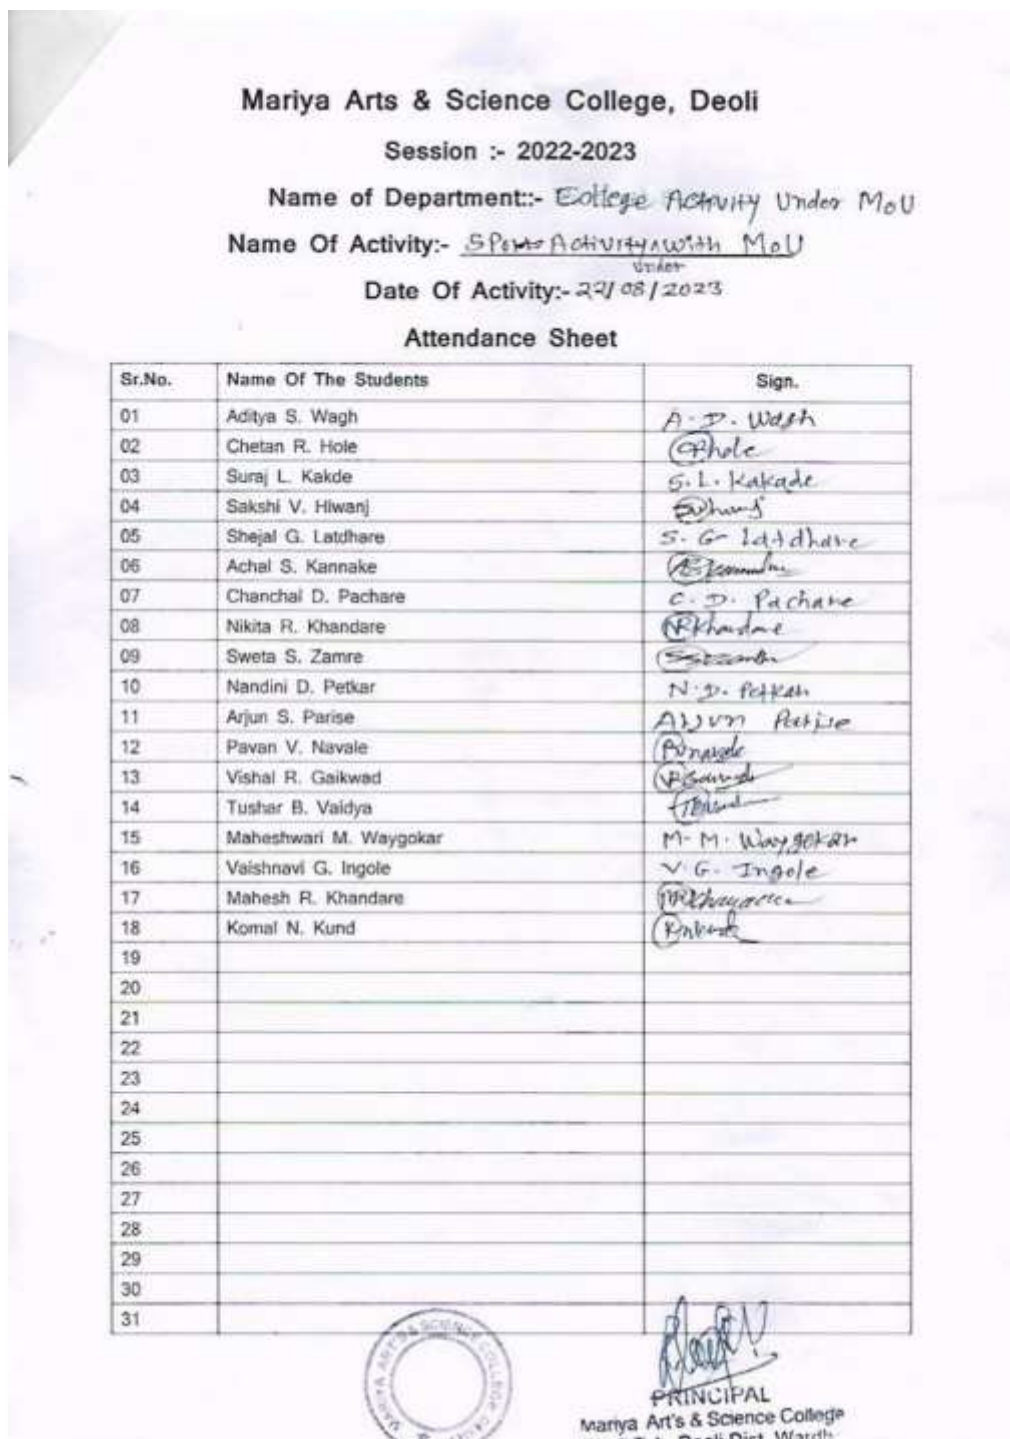 Mariya Arts & Science College, Deoli
Session :- 2022-2023
Name of Department::- College Activity Under MoU
Name Of Activity:- Sports Activity under with MoU
Date Of Activity:- 22/08/2023
Attendance Sheet
Sr.No. Name Of The Students Sign.
01 Aditya S. Wagh A. D. Wagh
02 Chetan R. Hole CRhole
03 Suraj L. Kakde S. L. Kakade
04 Sakshi V. Hiwanj
05 Shejal G. Latdhare S. G Latdhare
06 Achal S. Kannake
07 Chanchal D. Pachare C. D. Pachare
08 Nikita R. Khandare NRKhandare
09 Sweta S. Zamre
10 Nandini D. Petkar N. D. Petkar
11 Arjun S. Parise Arjun Parise
12 Pavan V. Navale
13 Vishal R. Gaikwad
14 Tushar B. Vaidya
15 Maheshwari M. Waygokar M. M. Waygokar
16 Vaishnavi G. Ingole V. G. Ingole
17 Mahesh R. Khandare
18 Komal N. Kund
19
20
21
22
23
24
25
26
27
28
29
30
31
MARIYA ART'S & SCIENCE COLLEGE
PRINCIPAL
Mariya Art's & Science College
Deoli Dist.